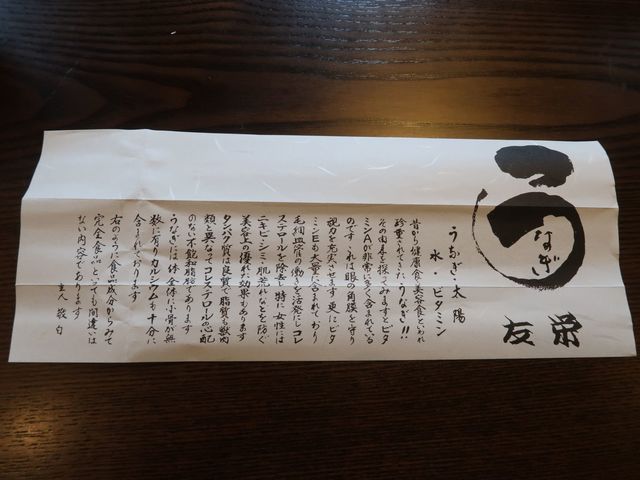 うなぎ
友栄
うなぎ・太陽
水・ビタミン
昔から健康食・美容食といわれ
珍重されてきたうなぎ!!
その由来を探ってみますとビタ
ミンAが非常に多く含まれている
のです これは眼の角膜を守り
視力を充実させます 更にビタ
ミンEも大量に含まれており
毛細血管の働きを活発にしコレ
ステロールを除去し特に女性には
ニキビ・シミ・肌荒れなどを防ぐ
美容上の優れた効果もあります
タンパク質は良質で脂質も獣肉
類と異なってコレステロールの心配
のない不飽和脂肪酸であります
うなぎには体全体に小骨が無
数に有りカルシウムも十分に
含まれております
右のように食品成分からみて
完全食品といっても間違いは
ない内容であります
主人敬白